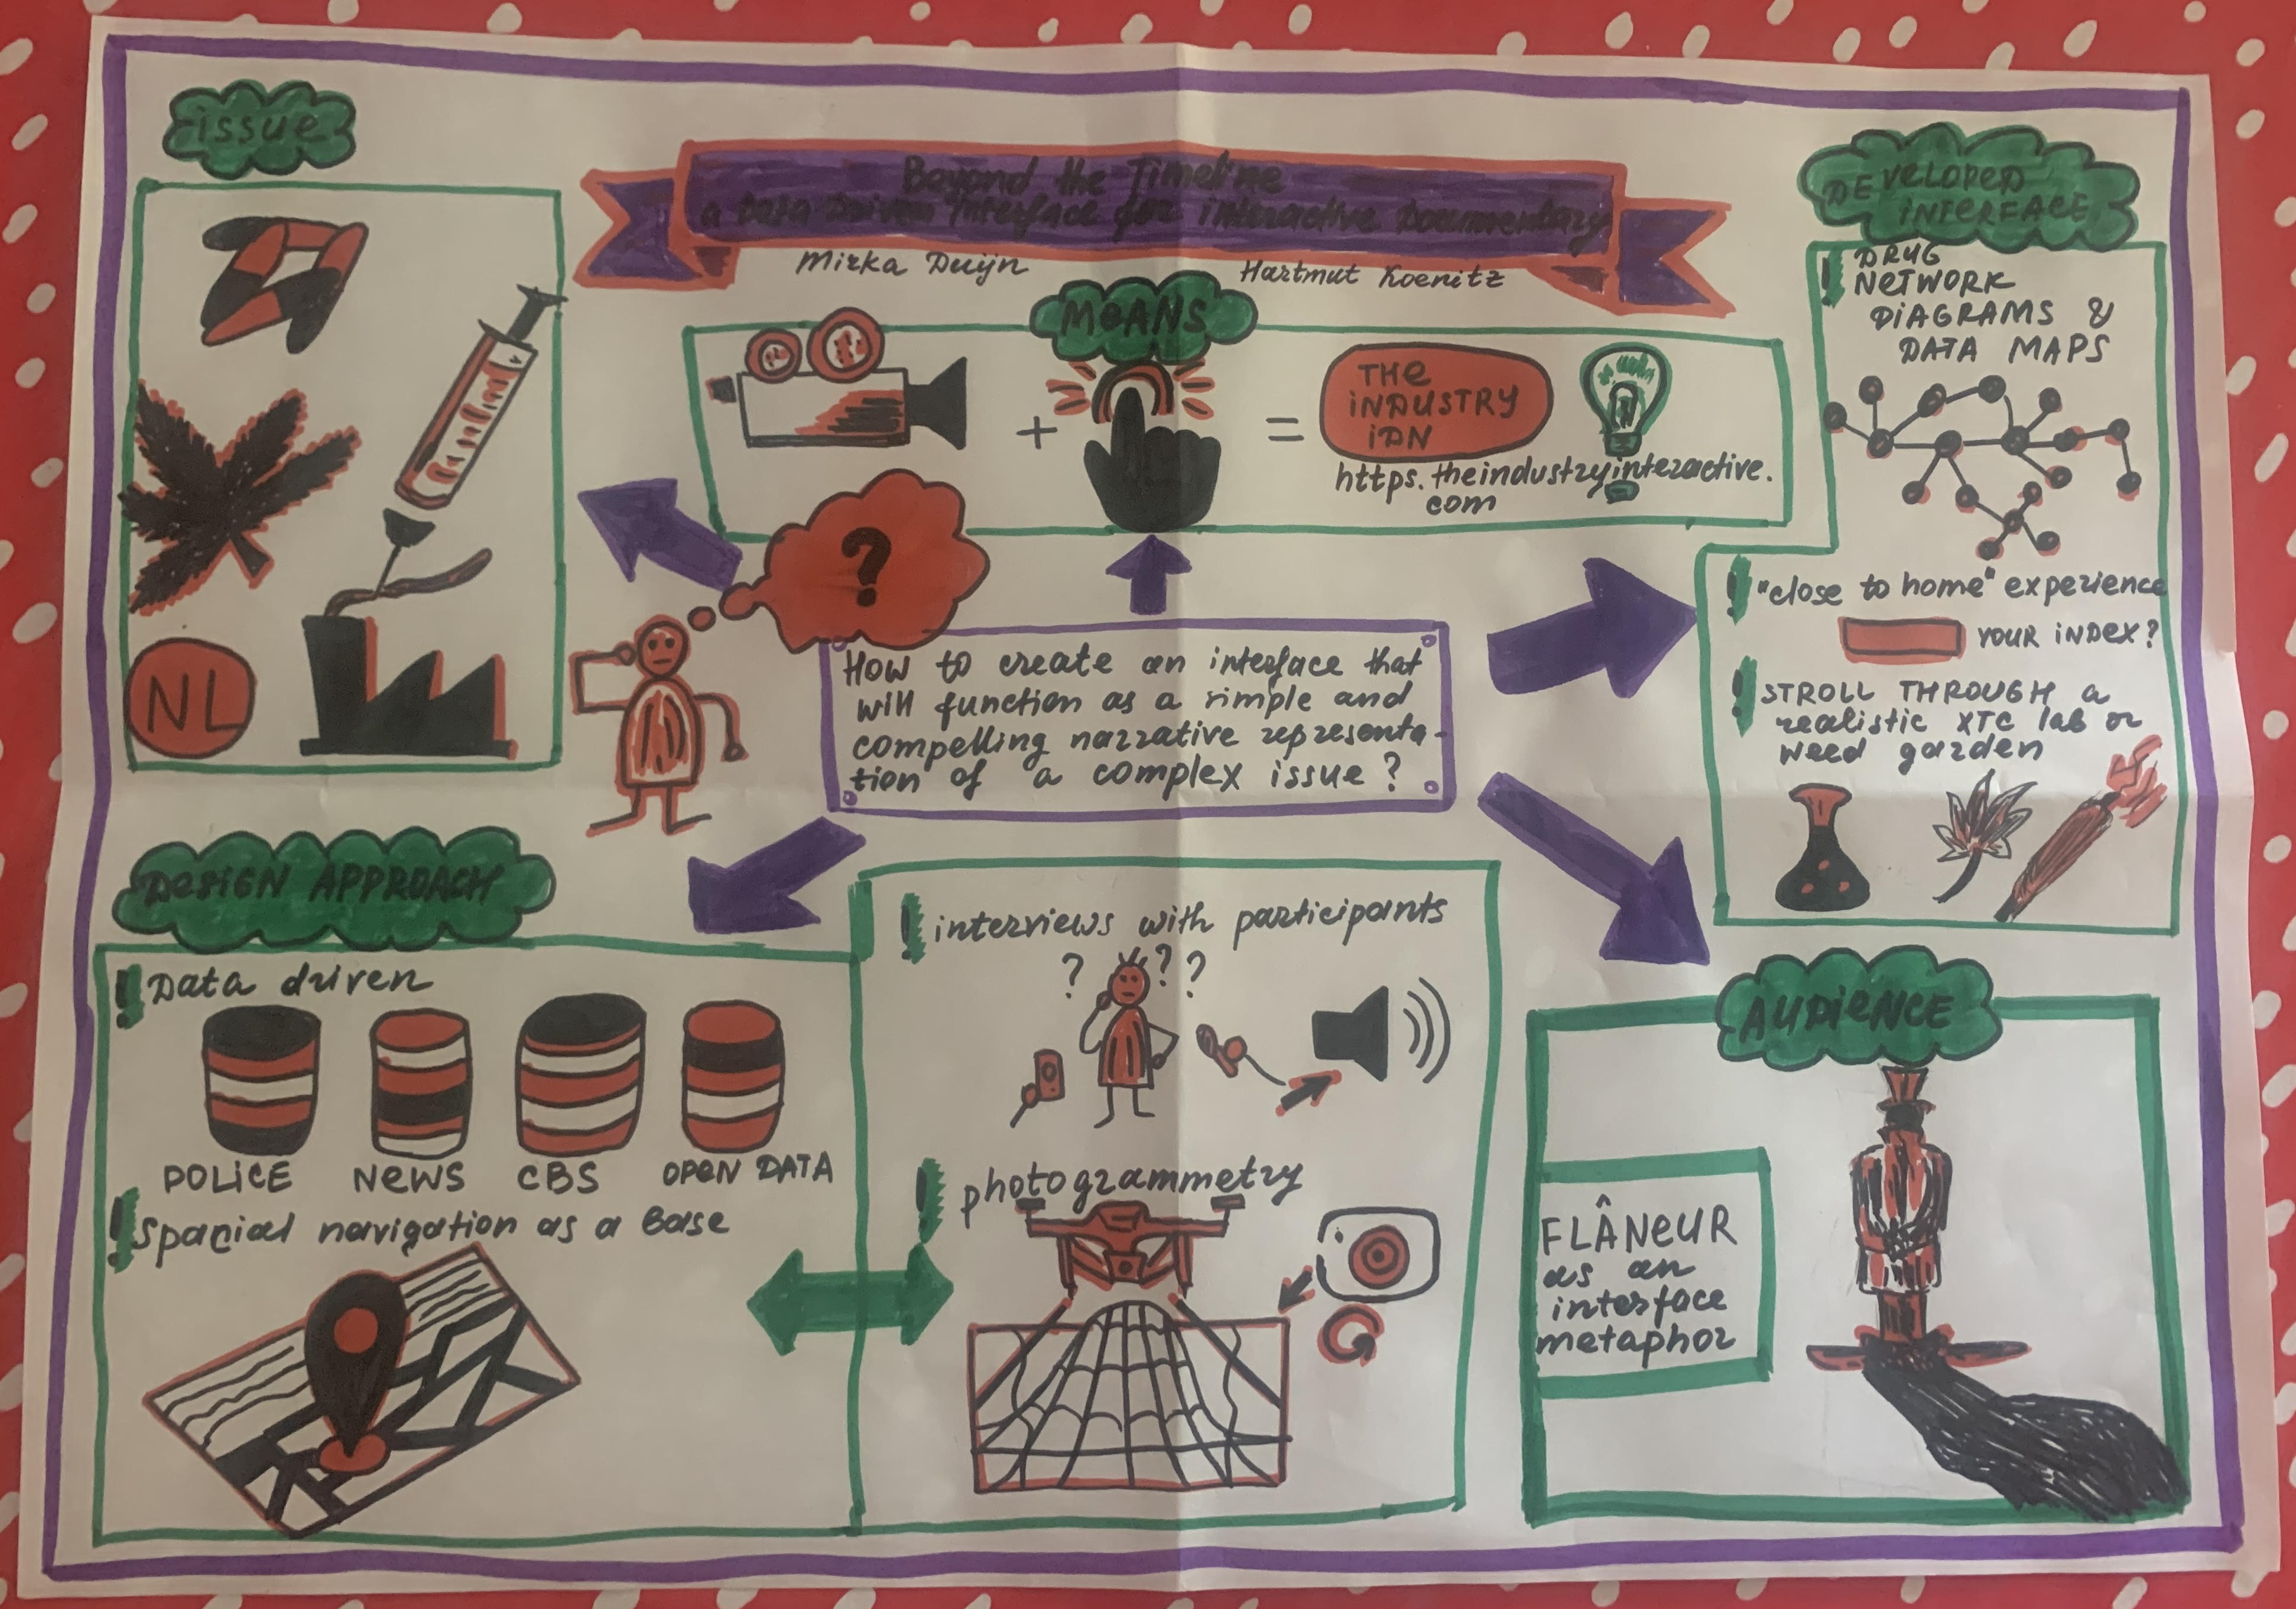 issue
NL
Beyond the Timeline
a Data Driven Interface for interactive Documentary
Mirka Duijn
Hartmut Koenitz
MEANS
+
=
THE
INDUSTRY
IDN
https.theindustryinteractive.
com
?
How to create an interface that
will function as a simple and
compelling narrative representa-
tion of a complex issue?
DEVELOPED
INTERFACE
! DRUG
NETWORK
DIAGRAMS &
DATA MAPS
! "close to home" experience
YOUR INDEX?
! STROLL THROUGH a
realistic XTC lab or
weed garden
DESIGN APPROACH
! Data driven
POLICE NEWS CBS OPEN DATA
! Spacial navigation as a base
! interviews with participants
? ? ?
! photogrammetry
AUDIENCE
FLÂNEUR
as an
interface
metaphor